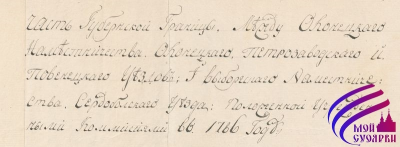 часть Губернской Границы, Между Олонецкого
Наместничества. Олонецкаго, Петрозаводского и
Повенецкого Уездов; и выборгского Наместниче-
ства, Сердобольского Уезда; Положенной
Коммисией въ 1786 Году
МОЙ
СУОЯРВИ